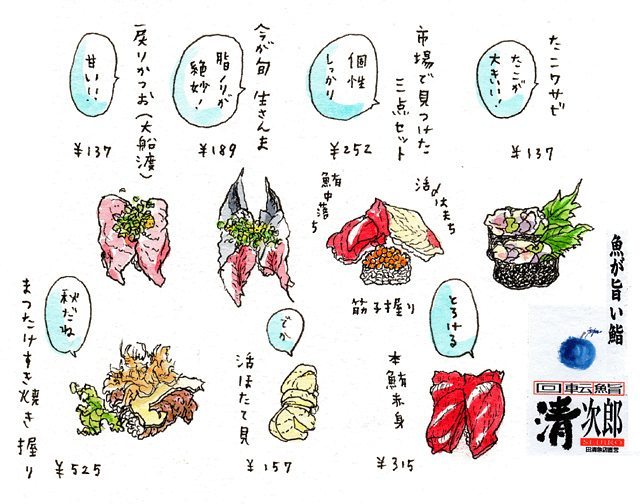 たこワサビ
たこが
大きいい!
¥137
市場で見つけた
三点セット
個性
しっかり
¥252
活〆はたち
鮪中落ち
筋子握り
今が旬 生さんま
脂ノリが
絶妙!
¥189
戻りかつお(大船渡)
甘いい!
¥137
本鮪赤身
とろける
¥315
活ほたて貝
でか
¥157
まつたけすき焼き握り
秋だね
¥525
魚が旨い鮨
回転鮨
清次郎
SEIJIRO